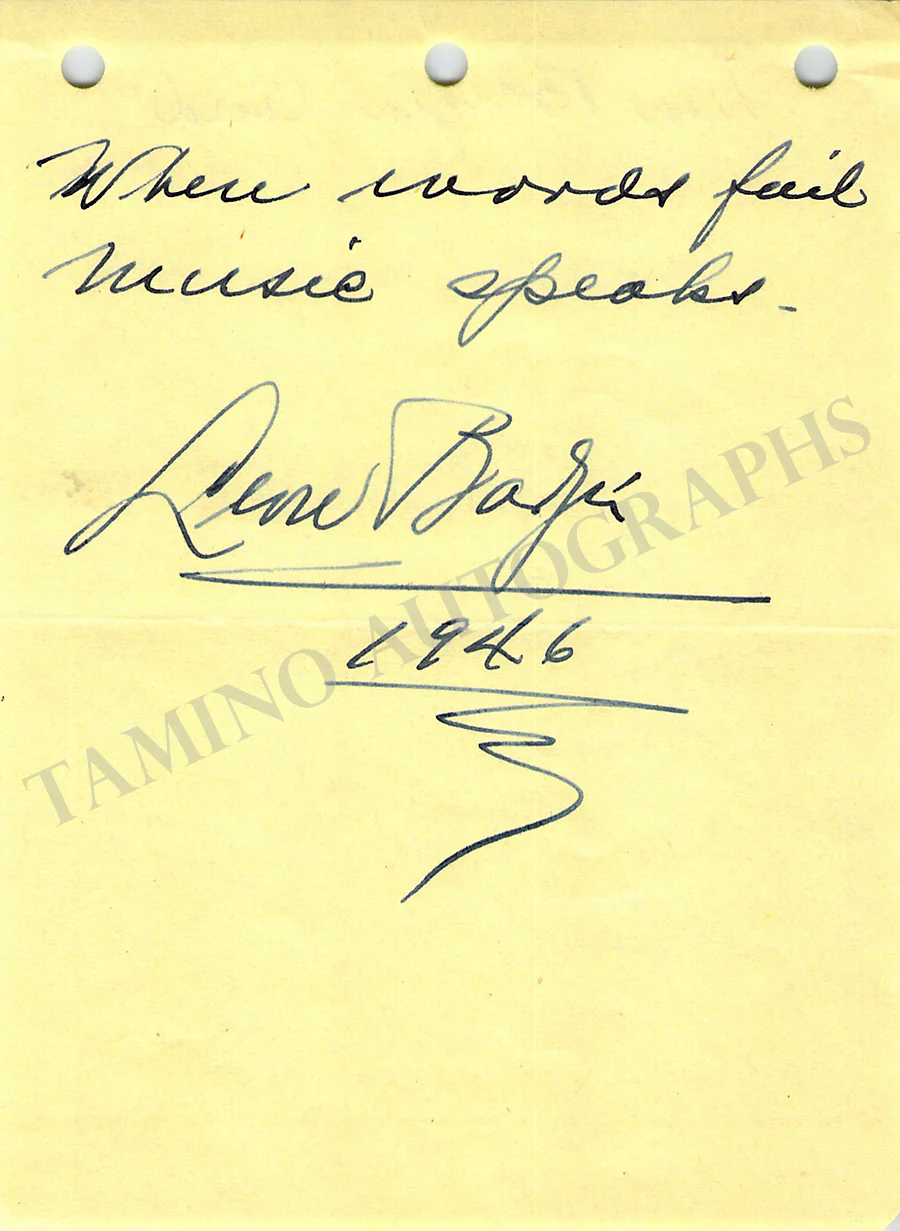 When words fail
music speaks.
Leon Barzin
1946
TAMINO AUTOGRAPHS